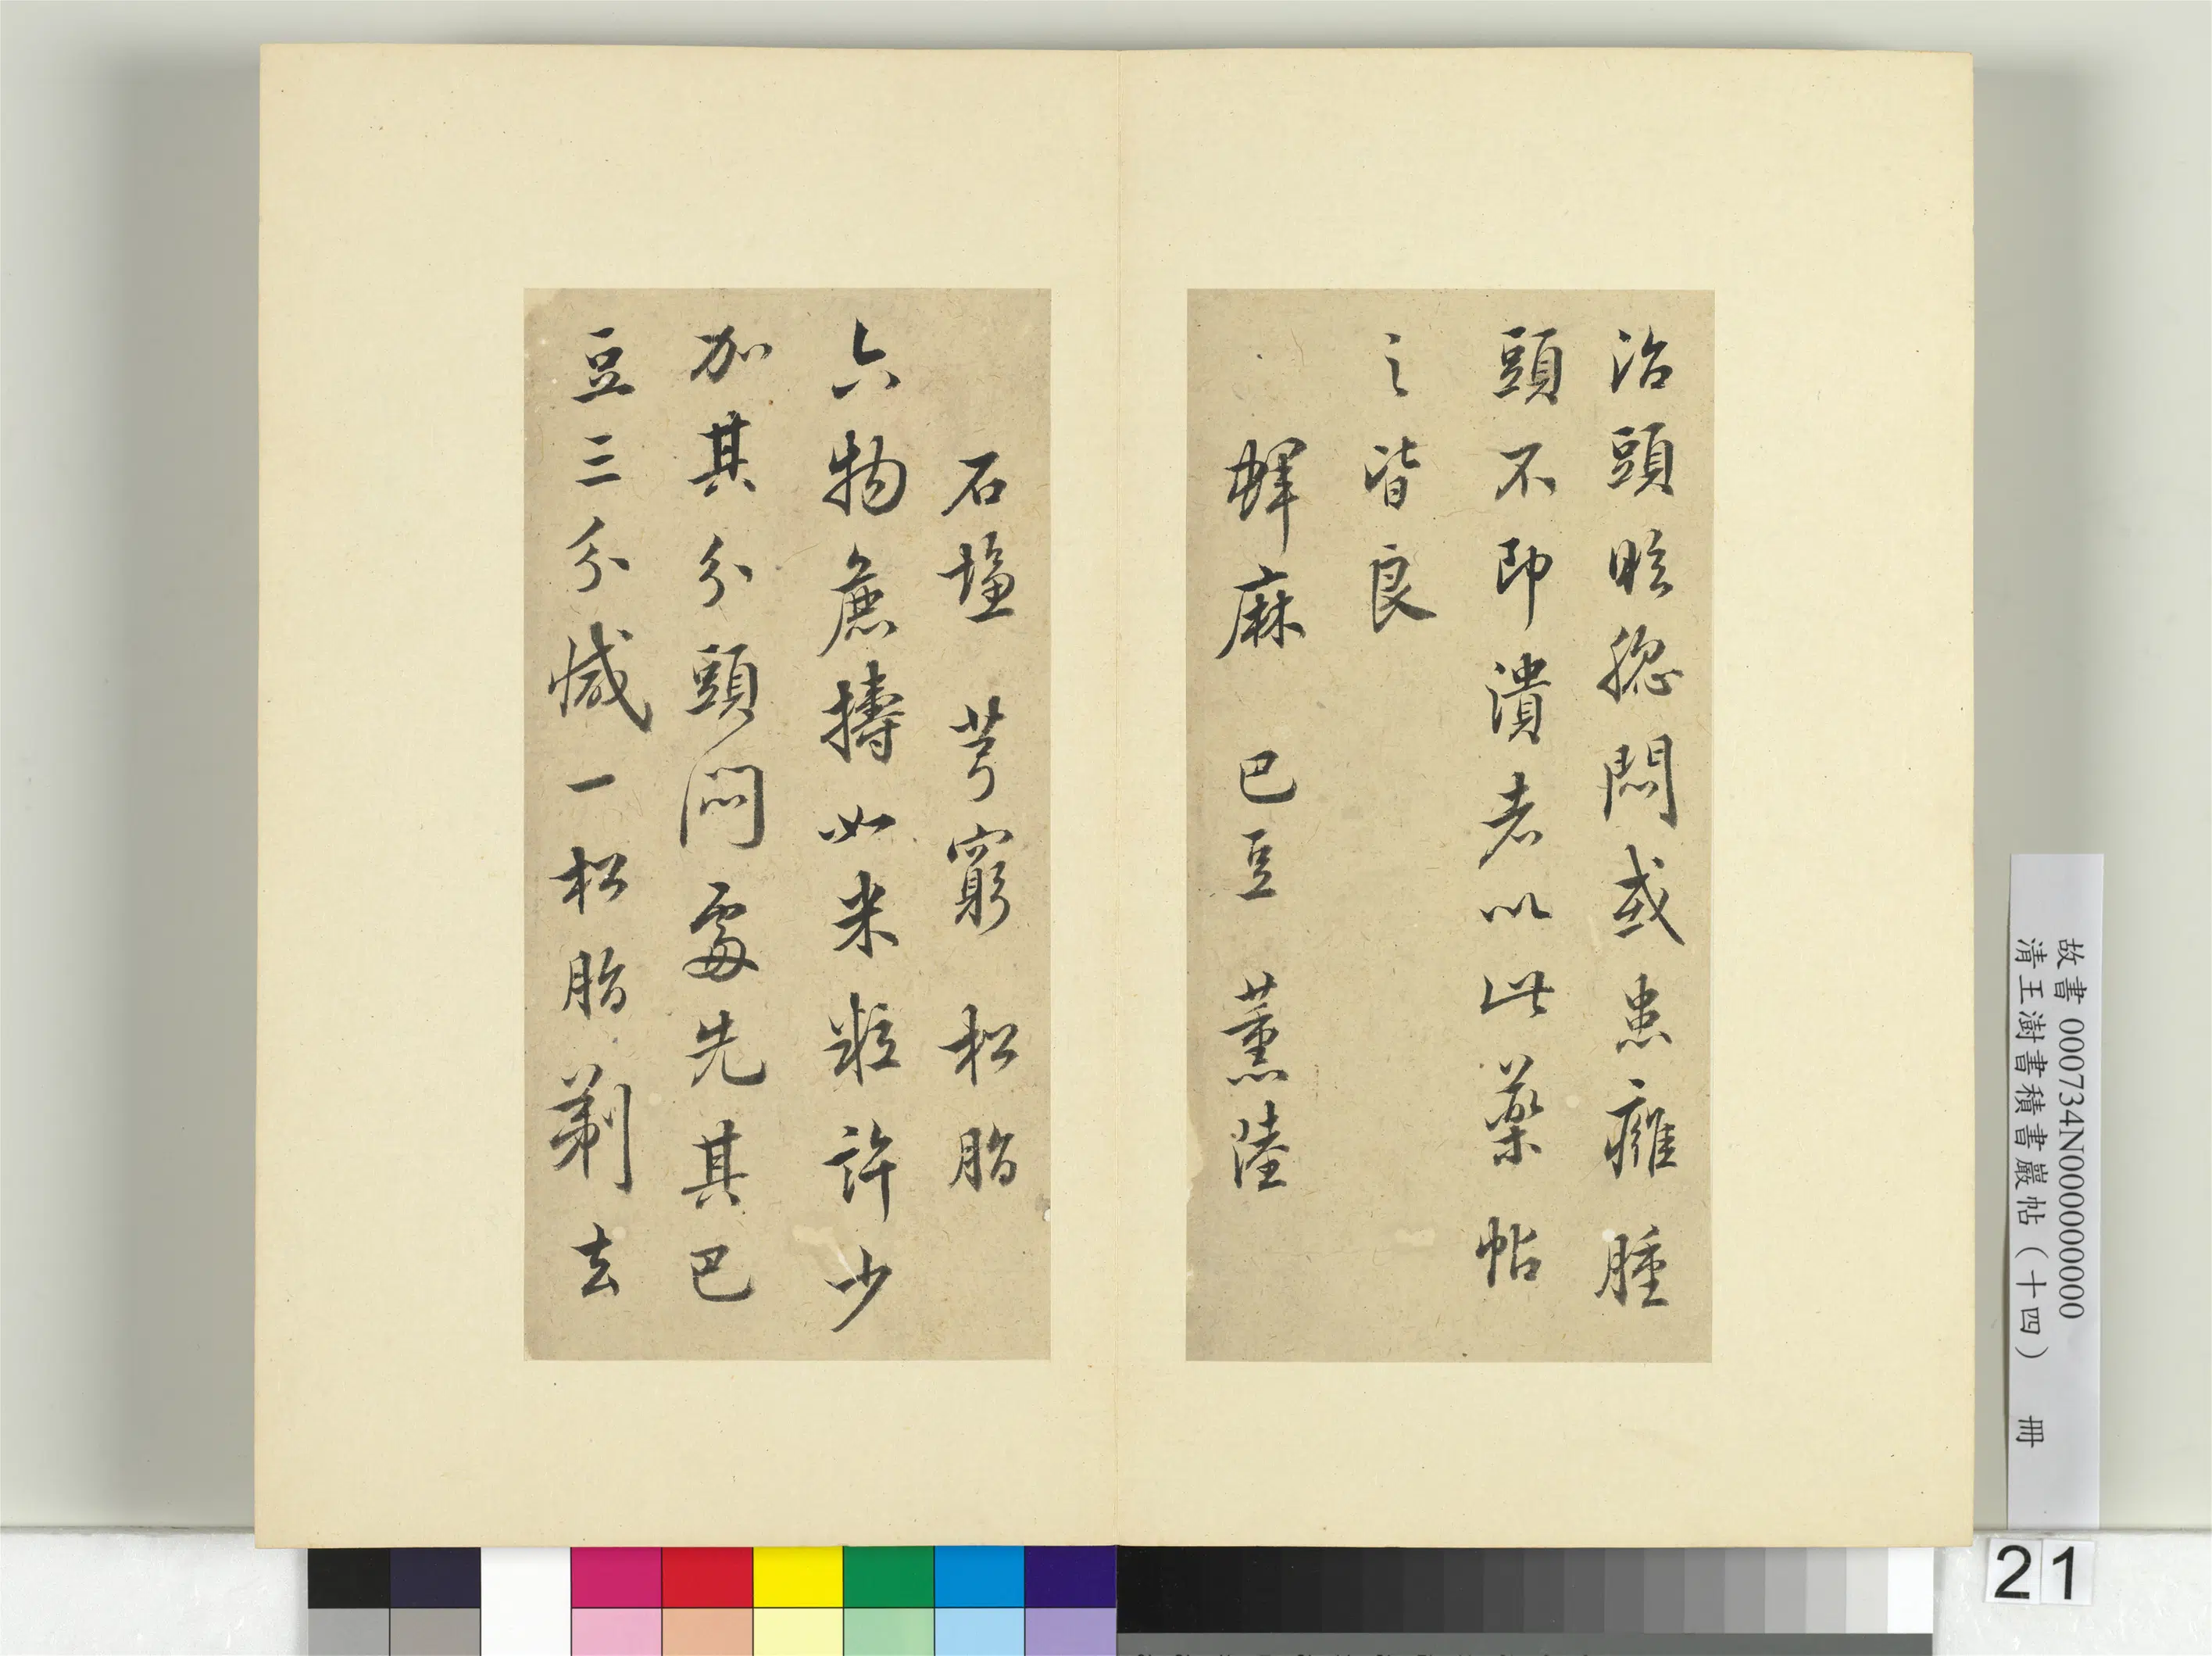 治頭眩𦡁悶或患癰腫
頭不即潰者以此藥帖
之皆良
蜱麻 巴豆 薰陸
石塩 芎窮 松脂
六物麁擣如米粒許少
加其分頭悶處先其巴
豆三分減一松脂剃去
故書 000734N000000000
清王澍書積書巖帖(十四) 冊
21